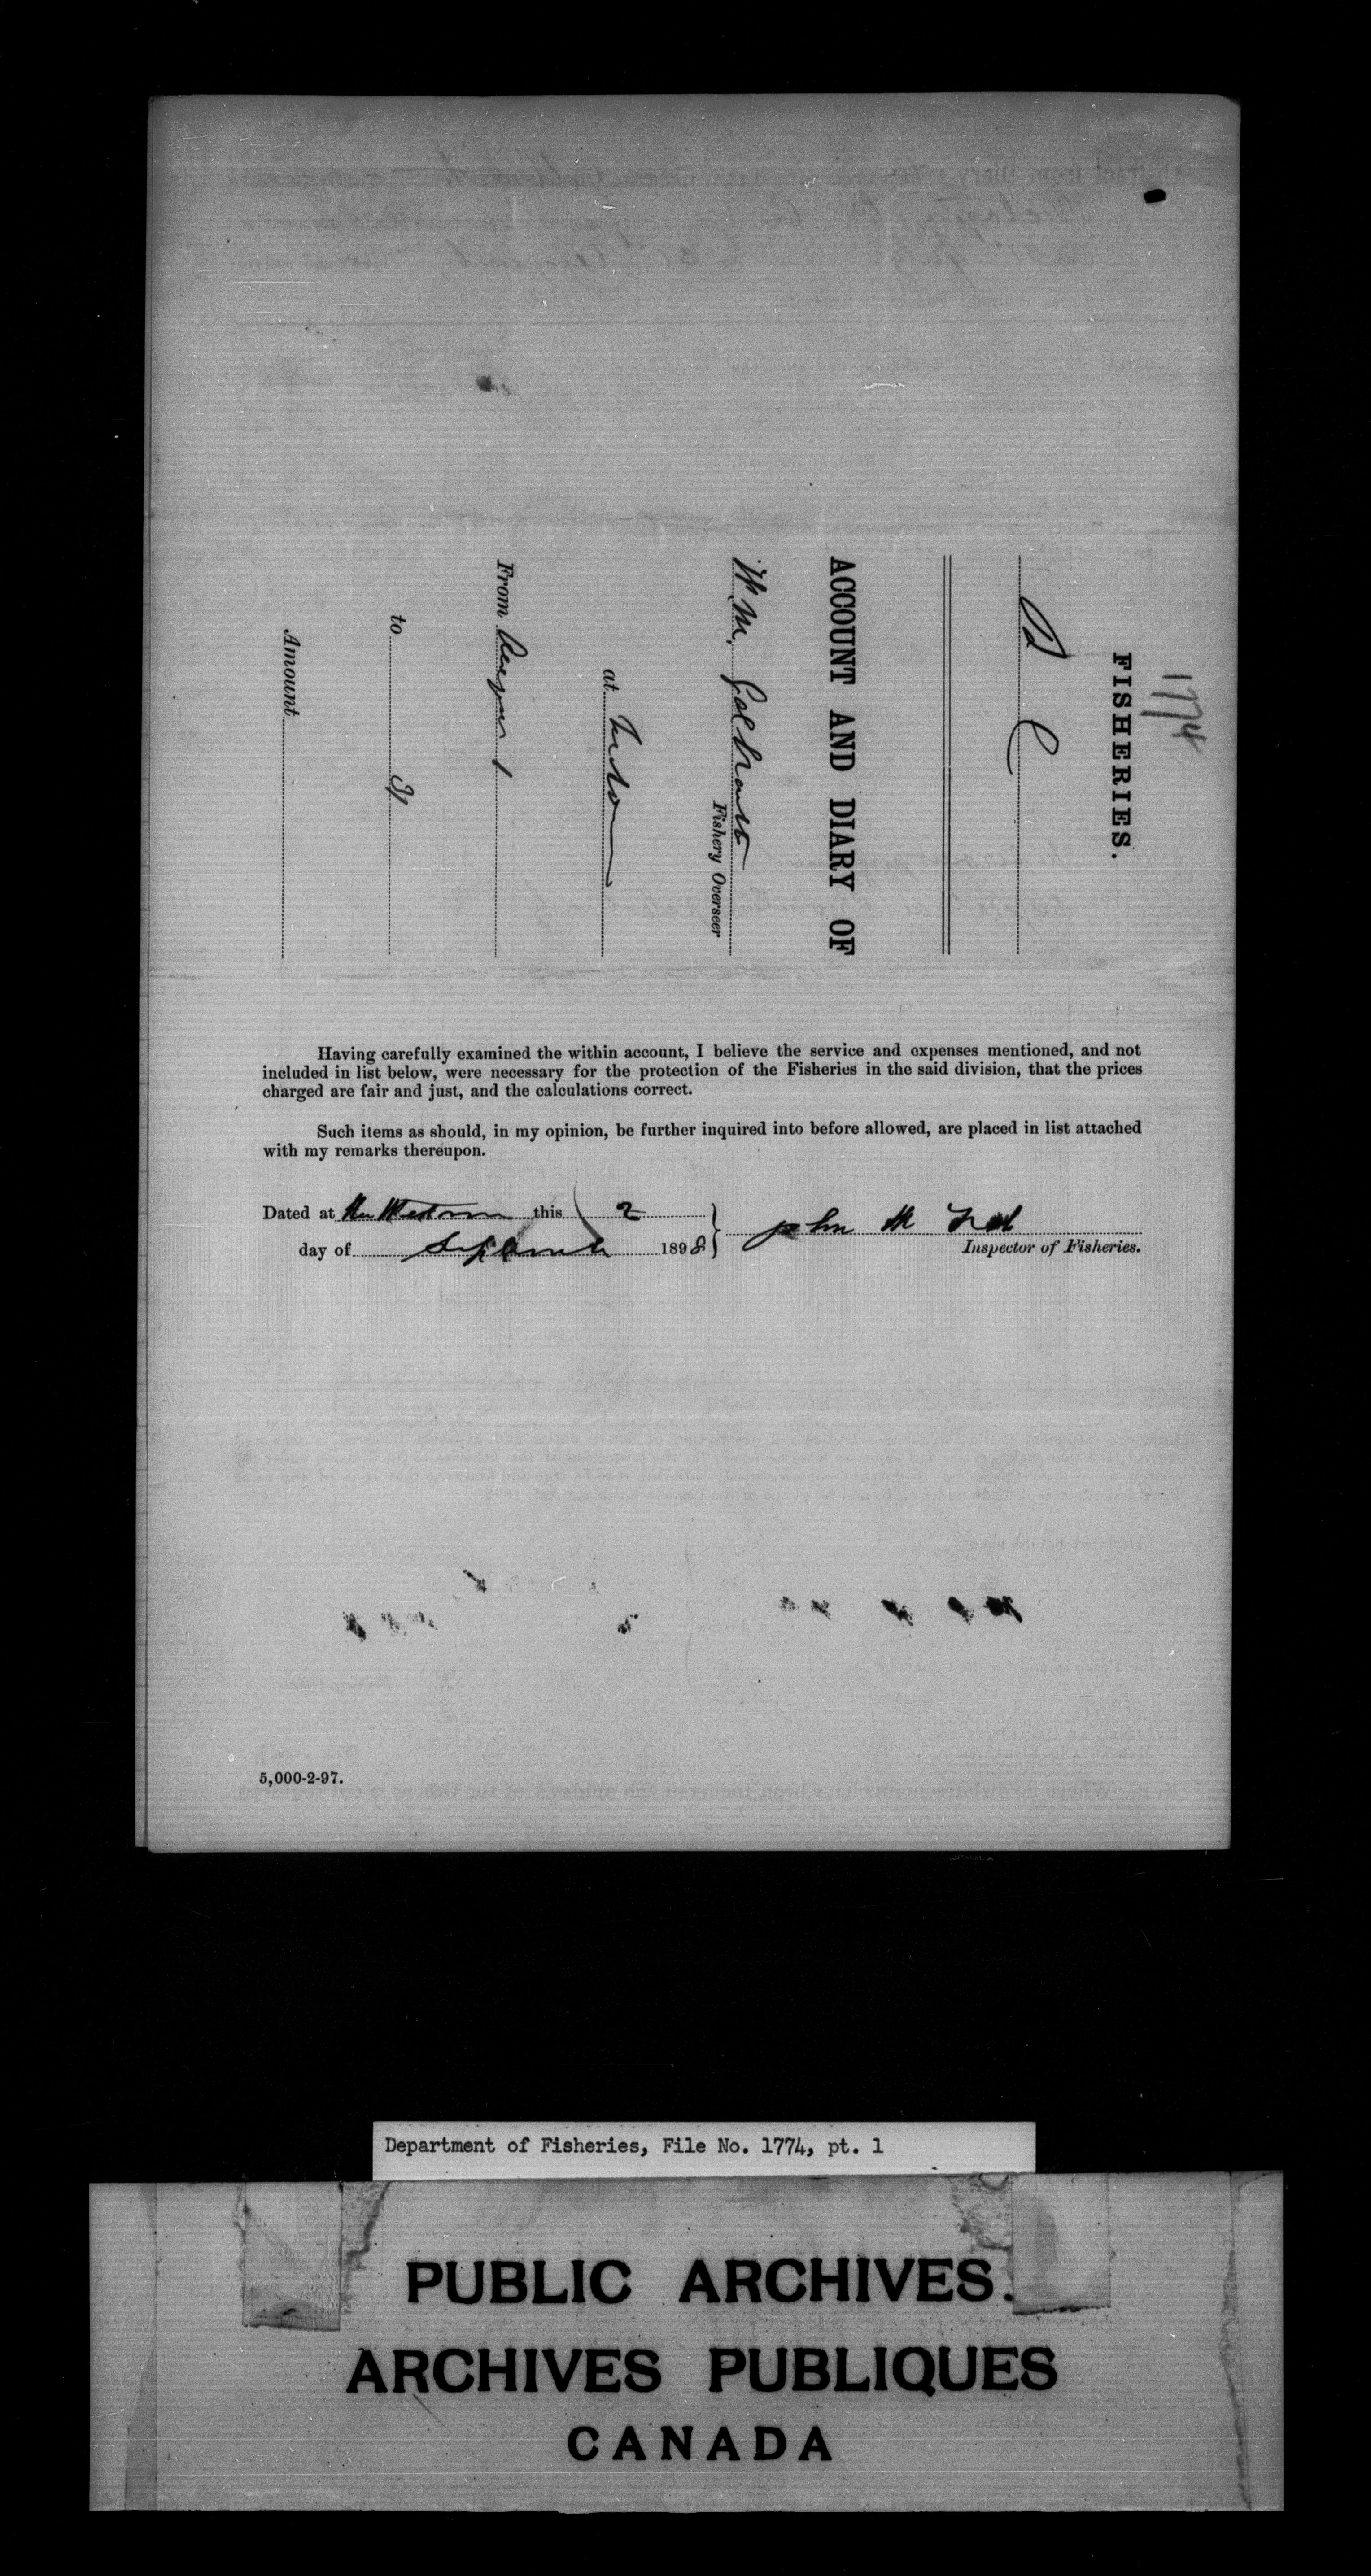 1774
FISHERIES.
B C
ACCOUNT AND DIARY OF
Fishery Overseer
at
From August 1
to 31
Amount
Having carefully examined the within account, I believe the service and expenses mentioned, and not
included in list below, were necessary for the protection of the Fisheries in the said division, that the prices
charged are fair and just, and the calculations correct.
Such items as should, in my opinion, be further inquired into before allowed, are placed in list attached
with my remarks thereupon.
Dated at New Westminster this 2
day of September 1898
John
Inspector of Fisheries.
5,000-2-97.
Department of Fisheries, File No. 1774, pt. 1
PUBLIC ARCHIVES.
ARCHIVES PUBLIQUES
CANADA